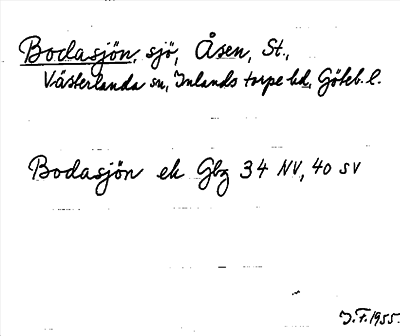 Bodasjön, sjö, Åsen, St.,
Västerlanda sn, Inlands torpe hd, Göteb. l.
Bodasjön ek Gbg 34 NV, 40 SV
J.F. 1955.